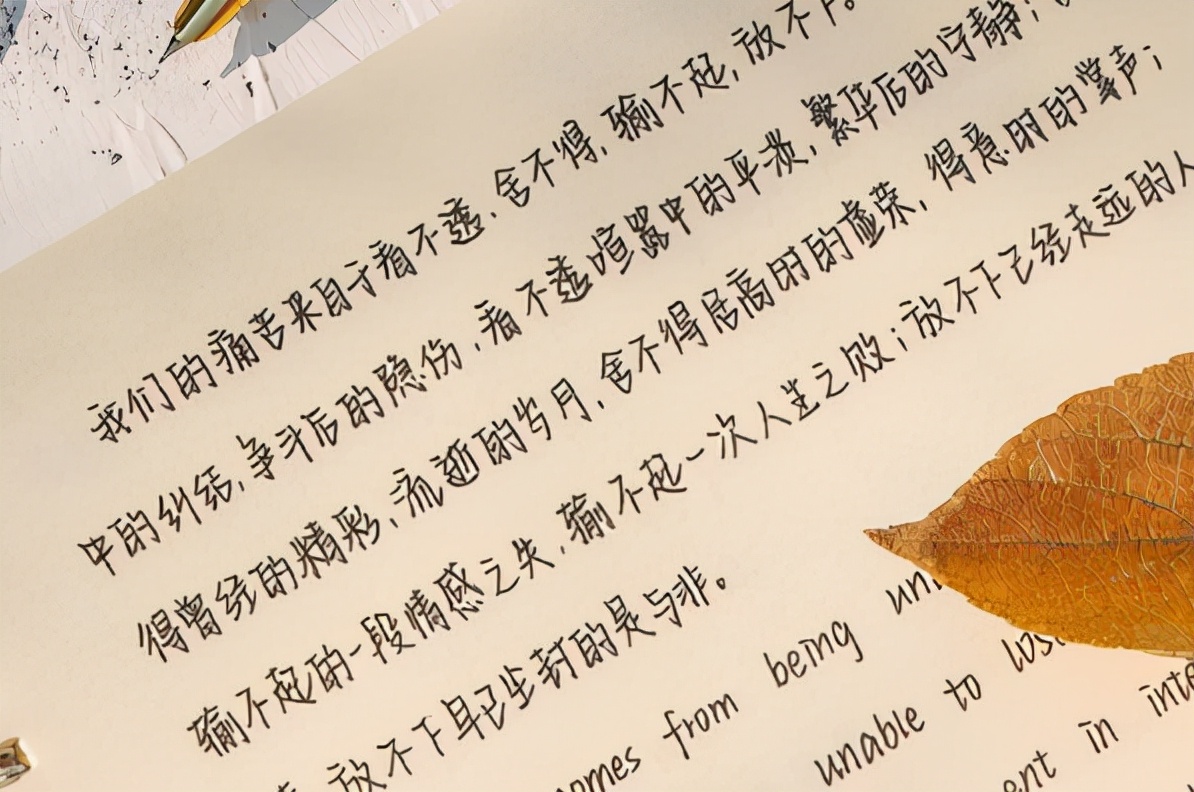 我们的痛苦来自于看不透、舍不得,输不起,放不下。
中的纠结,争斗后的隐伤,看不透喧嚣中的平淡,繁华后的宁静;
得曾经的精彩,流逝的岁月,舍不得居高时的虚荣,得意时的掌声;
输不起的一段情感之失,输不起一次人生之败;放不下已经走远的人
放不下早已尘封的是与非。
from being
unable to
in